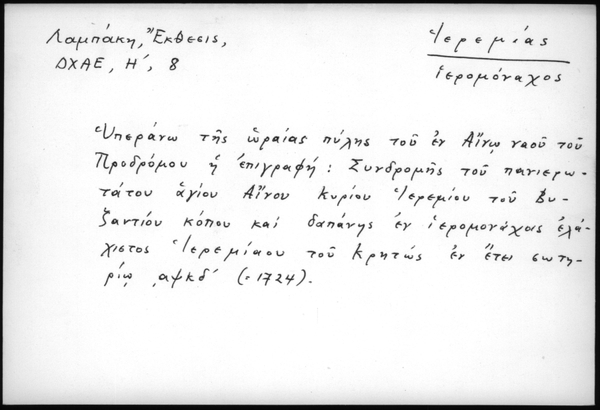 Λαμπάκη, Ἔκθεσις,
ΔΧΑΕ, Η΄, 8
Ἱερεμίας
ἱερομόναχος
Ὑπεράνω τῆς ὡραίας πύλης τοῦ ἐν Αἴνῳ ναοῦ τοῦ
Προδρόμου ἡ ἐπιγραφή: Συνδρομῆς τοῦ πανιερω-
τάτου ἁγίου Αἴνου κυρίου Ἱερεμίου τοῦ Βυ-
ζαντίου κόπου καί δαπάνης ἐν ἱερομονάχας ἐλά-
χιστος Ἱερεμίαου τοῦ Κρητώς ἐν ἔτει σωτη-
ρίῳ ͵αψκδ΄ (=1724).